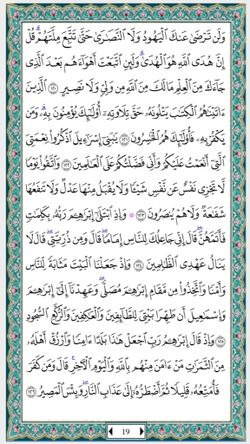 وَلَن تَرْضَىٰ عَنكَ ٱلْيَهُودُ وَلَا ٱلنَّصَٰرَىٰ حَتَّىٰ تَتَّبِعَ مِلَّتَهُمْ ۗ قُلْ
إِنَّ هُدَى ٱللَّهِ هُوَ ٱلْهُدَىٰ ۗ وَلَئِنِ ٱتَّبَعْتَ أَهْوَآءَهُم بَعْدَ ٱلَّذِى
جَآءَكَ مِنَ ٱلْعِلْمِ ۙ مَا لَكَ مِنَ ٱللَّهِ مِن وَلِىٍّ وَلَا نَصِيرٍ ١٢٠ ٱلَّذِينَ
ءَاتَيْنَٰهُمُ ٱلْكِتَٰبَ يَتْلُونَهُۥ حَقَّ تِلَاوَتِهِۦٓ أُو۟لَٰٓئِكَ يُؤْمِنُونَ بِهِۦ ۗ وَمَن
يَكْفُرْ بِهِۦ فَأُو۟لَٰٓئِكَ هُمُ ٱلْخَٰسِرُونَ ١٢١ يَٰبَنِىٓ إِسْرَٰٓءِيلَ ٱذْكُرُوا۟ نِعْمَتِىَ
ٱلَّتِىٓ أَنْعَمْتُ عَلَيْكُمْ وَأَنِّى فَضَّلْتُكُمْ عَلَى ٱلْعَٰلَمِينَ ١٢٢ وَٱتَّقُوا۟ يَوْمًا
لَّا تَجْزِى نَفْسٌ عَن نَّفْسٍ شَيْـًٔا وَلَا يُقْبَلُ مِنْهَا عَدْلٌ وَلَا تَنفَعُهَا
شَفَٰعَةٌ وَلَا هُمْ يُنصَرُونَ ١٢٣ ۞ وَإِذِ ٱبْتَلَىٰٓ إِبْرَٰهِۦمَ رَبُّهُۥ بِكَلِمَٰتٍ
فَأَتَمَّهُنَّ ۖ قَالَ إِنِّى جَاعِلُكَ لِلنَّاسِ إِمَامًا ۖ قَالَ وَمِن ذُرِّيَّتِى ۖ قَالَ لَا
يَنَالُ عَهْدِى ٱلظَّٰلِمِينَ ١٢٤ وَإِذْ جَعَلْنَا ٱلْبَيْتَ مَثَابَةً لِّلنَّاسِ
وَأَمْنًا وَٱتَّخِذُوا۟ مِن مَّقَامِ إِبْرَٰهِۦمَ مُصَلًّى ۖ وَعَهِدْنَآ إِلَىٰٓ إِبْرَٰهِۦمَ
وَإِسْمَٰعِيلَ أَن طَهِّرَا بَيْتِىَ لِلطَّآئِفِينَ وَٱلْعَٰكِفِينَ وَٱلرُّكَّعِ ٱلسُّجُودِ
١٢٥ وَإِذْ قَالَ إِبْرَٰهِۦمُ رَبِّ ٱجْعَلْ هَٰذَا بَلَدًا ءَامِنًا وَٱرْزُقْ أَهْلَهُۥ
مِنَ ٱلثَّمَرَٰتِ مَنْ ءَامَنَ مِنْهُم بِٱللَّهِ وَٱلْيَوْمِ ٱلْءَاخِرِ ۖ قَالَ وَمَن كَفَرَ
فَأُمَتِّعُهُۥ قَلِيلًا ثُمَّ أَضْطَرُّهُۥٓ إِلَىٰ عَذَابِ ٱلنَّارِ ۖ وَبِئْسَ ٱلْمَصِيرُ ١٢٦
19